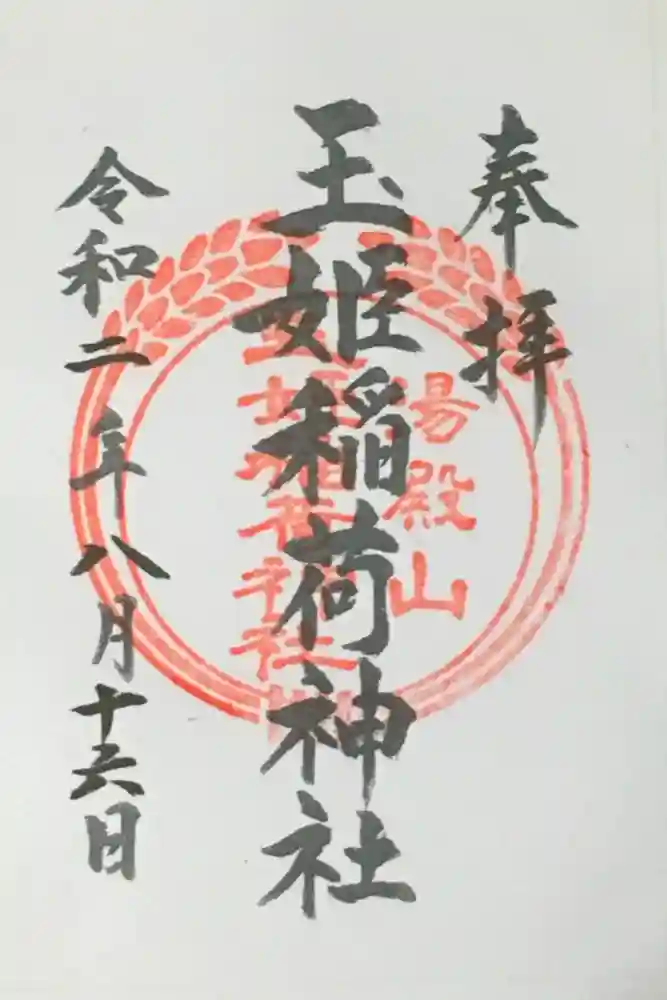 奉拝
湯殿山
玉姫稲荷神社
玉姫稲荷神社
令和二年八月十六日